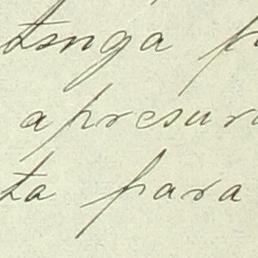 tenga
apresur
ta para